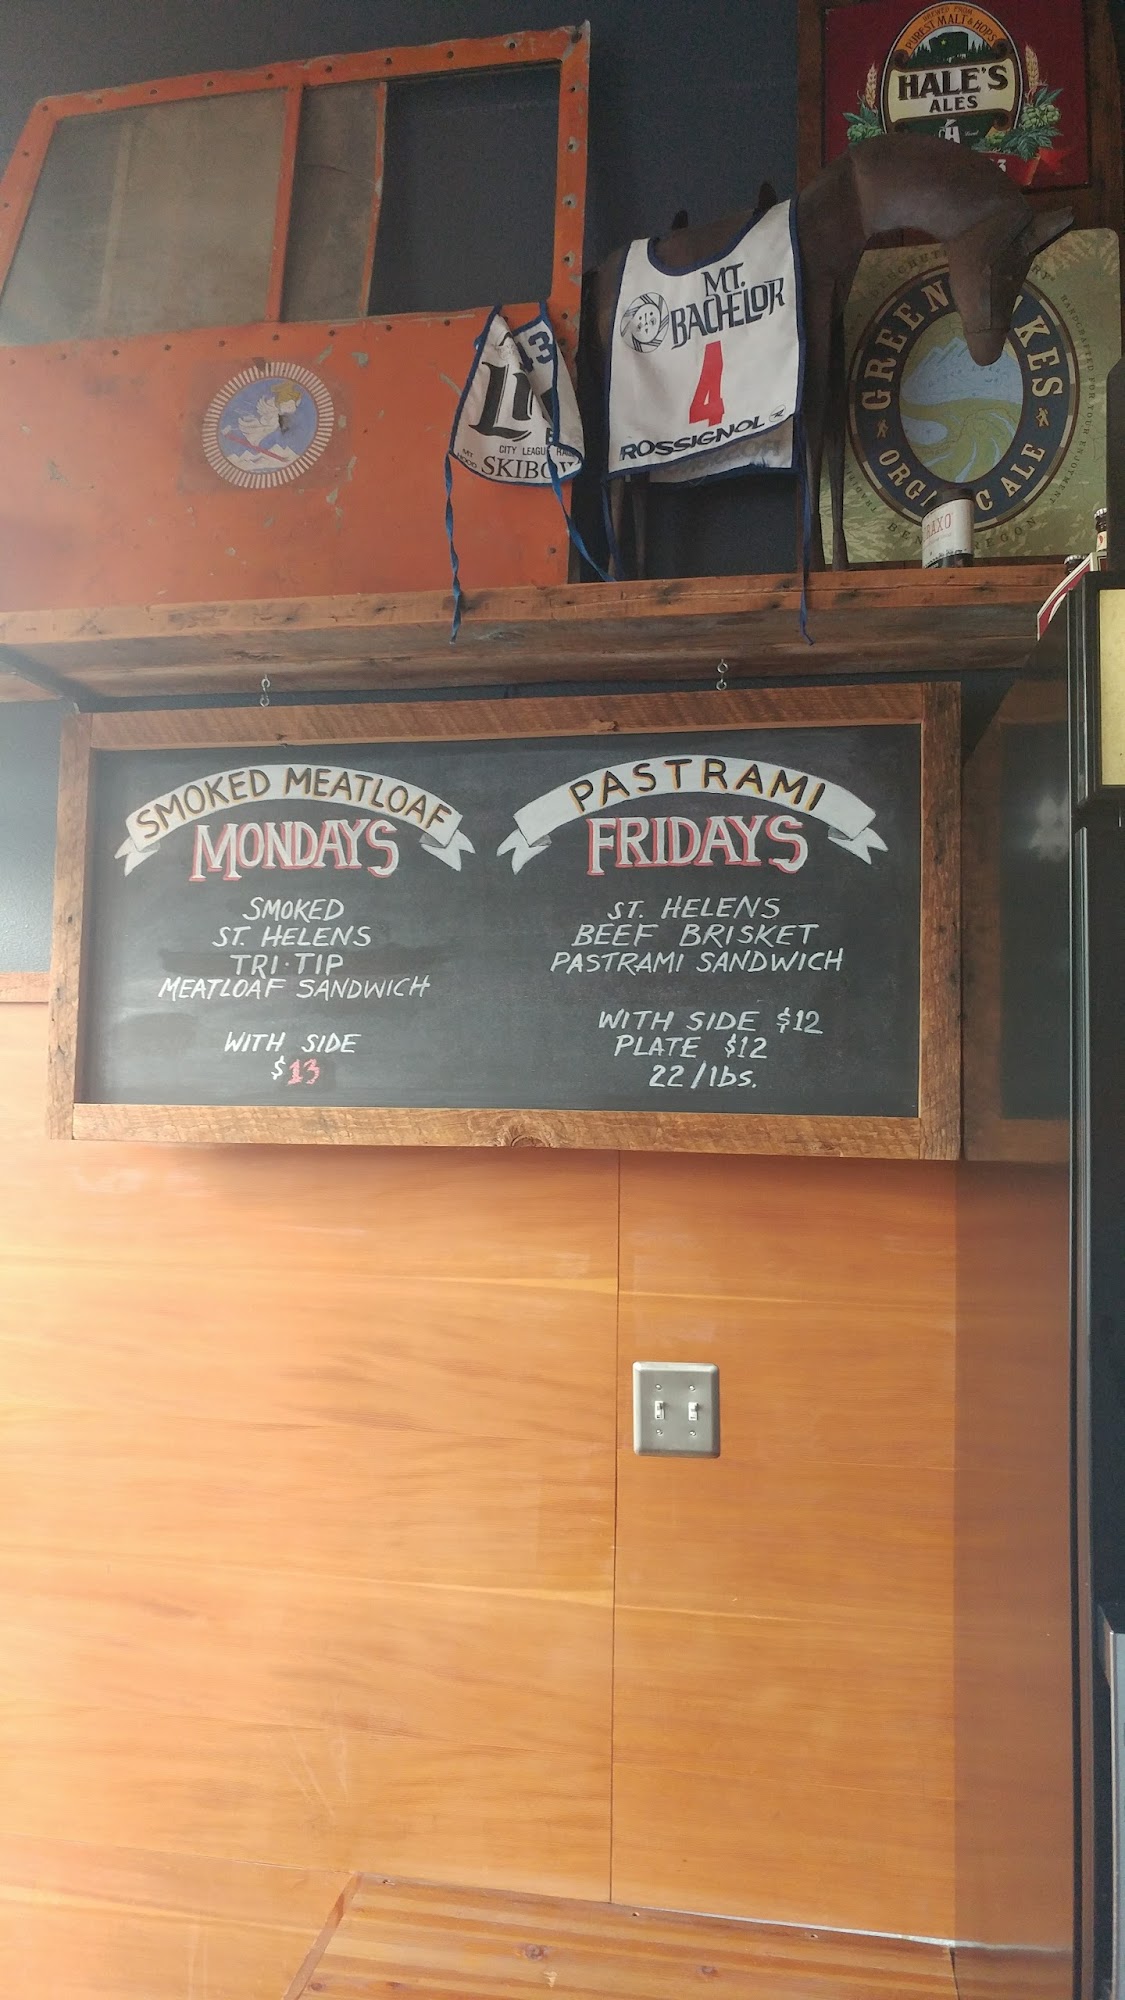 BREWED FROM
PUREST MALT & HOPS
HALE'S
ALES
MT.
BACHELOR
4
ROSSIGNOL
13
CITY LEAGUE
MT.
HOOD
GREEN
KES
ORG
C ALE
SMOKED MEATLOAF
MONDAYS
SMOKED
ST. HELENS
TRI-TIP
MEATLOAF SANDWICH
WITH SIDE
$13
PASTRAMI
FRIDAYS
ST. HELENS
BEEF BRISKET
PASTRAMI SANDWICH
WITH SIDE $12
PLATE $12
22/lbs.